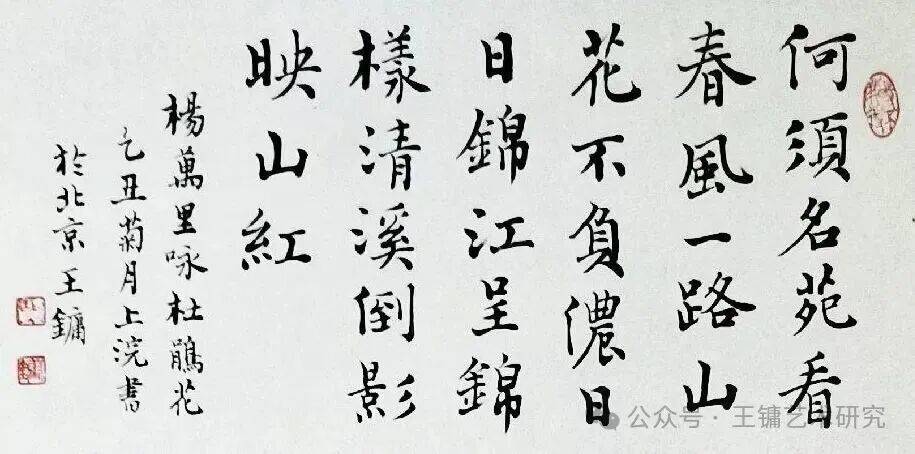 何須名苑看
春風一路山
花不負儂日
日錦江呈錦
樣清溪倒影
映山紅
楊萬里咏杜鵑花
乙丑菊月上浣書
於北京王鏞
公众号·王镛艺术研究